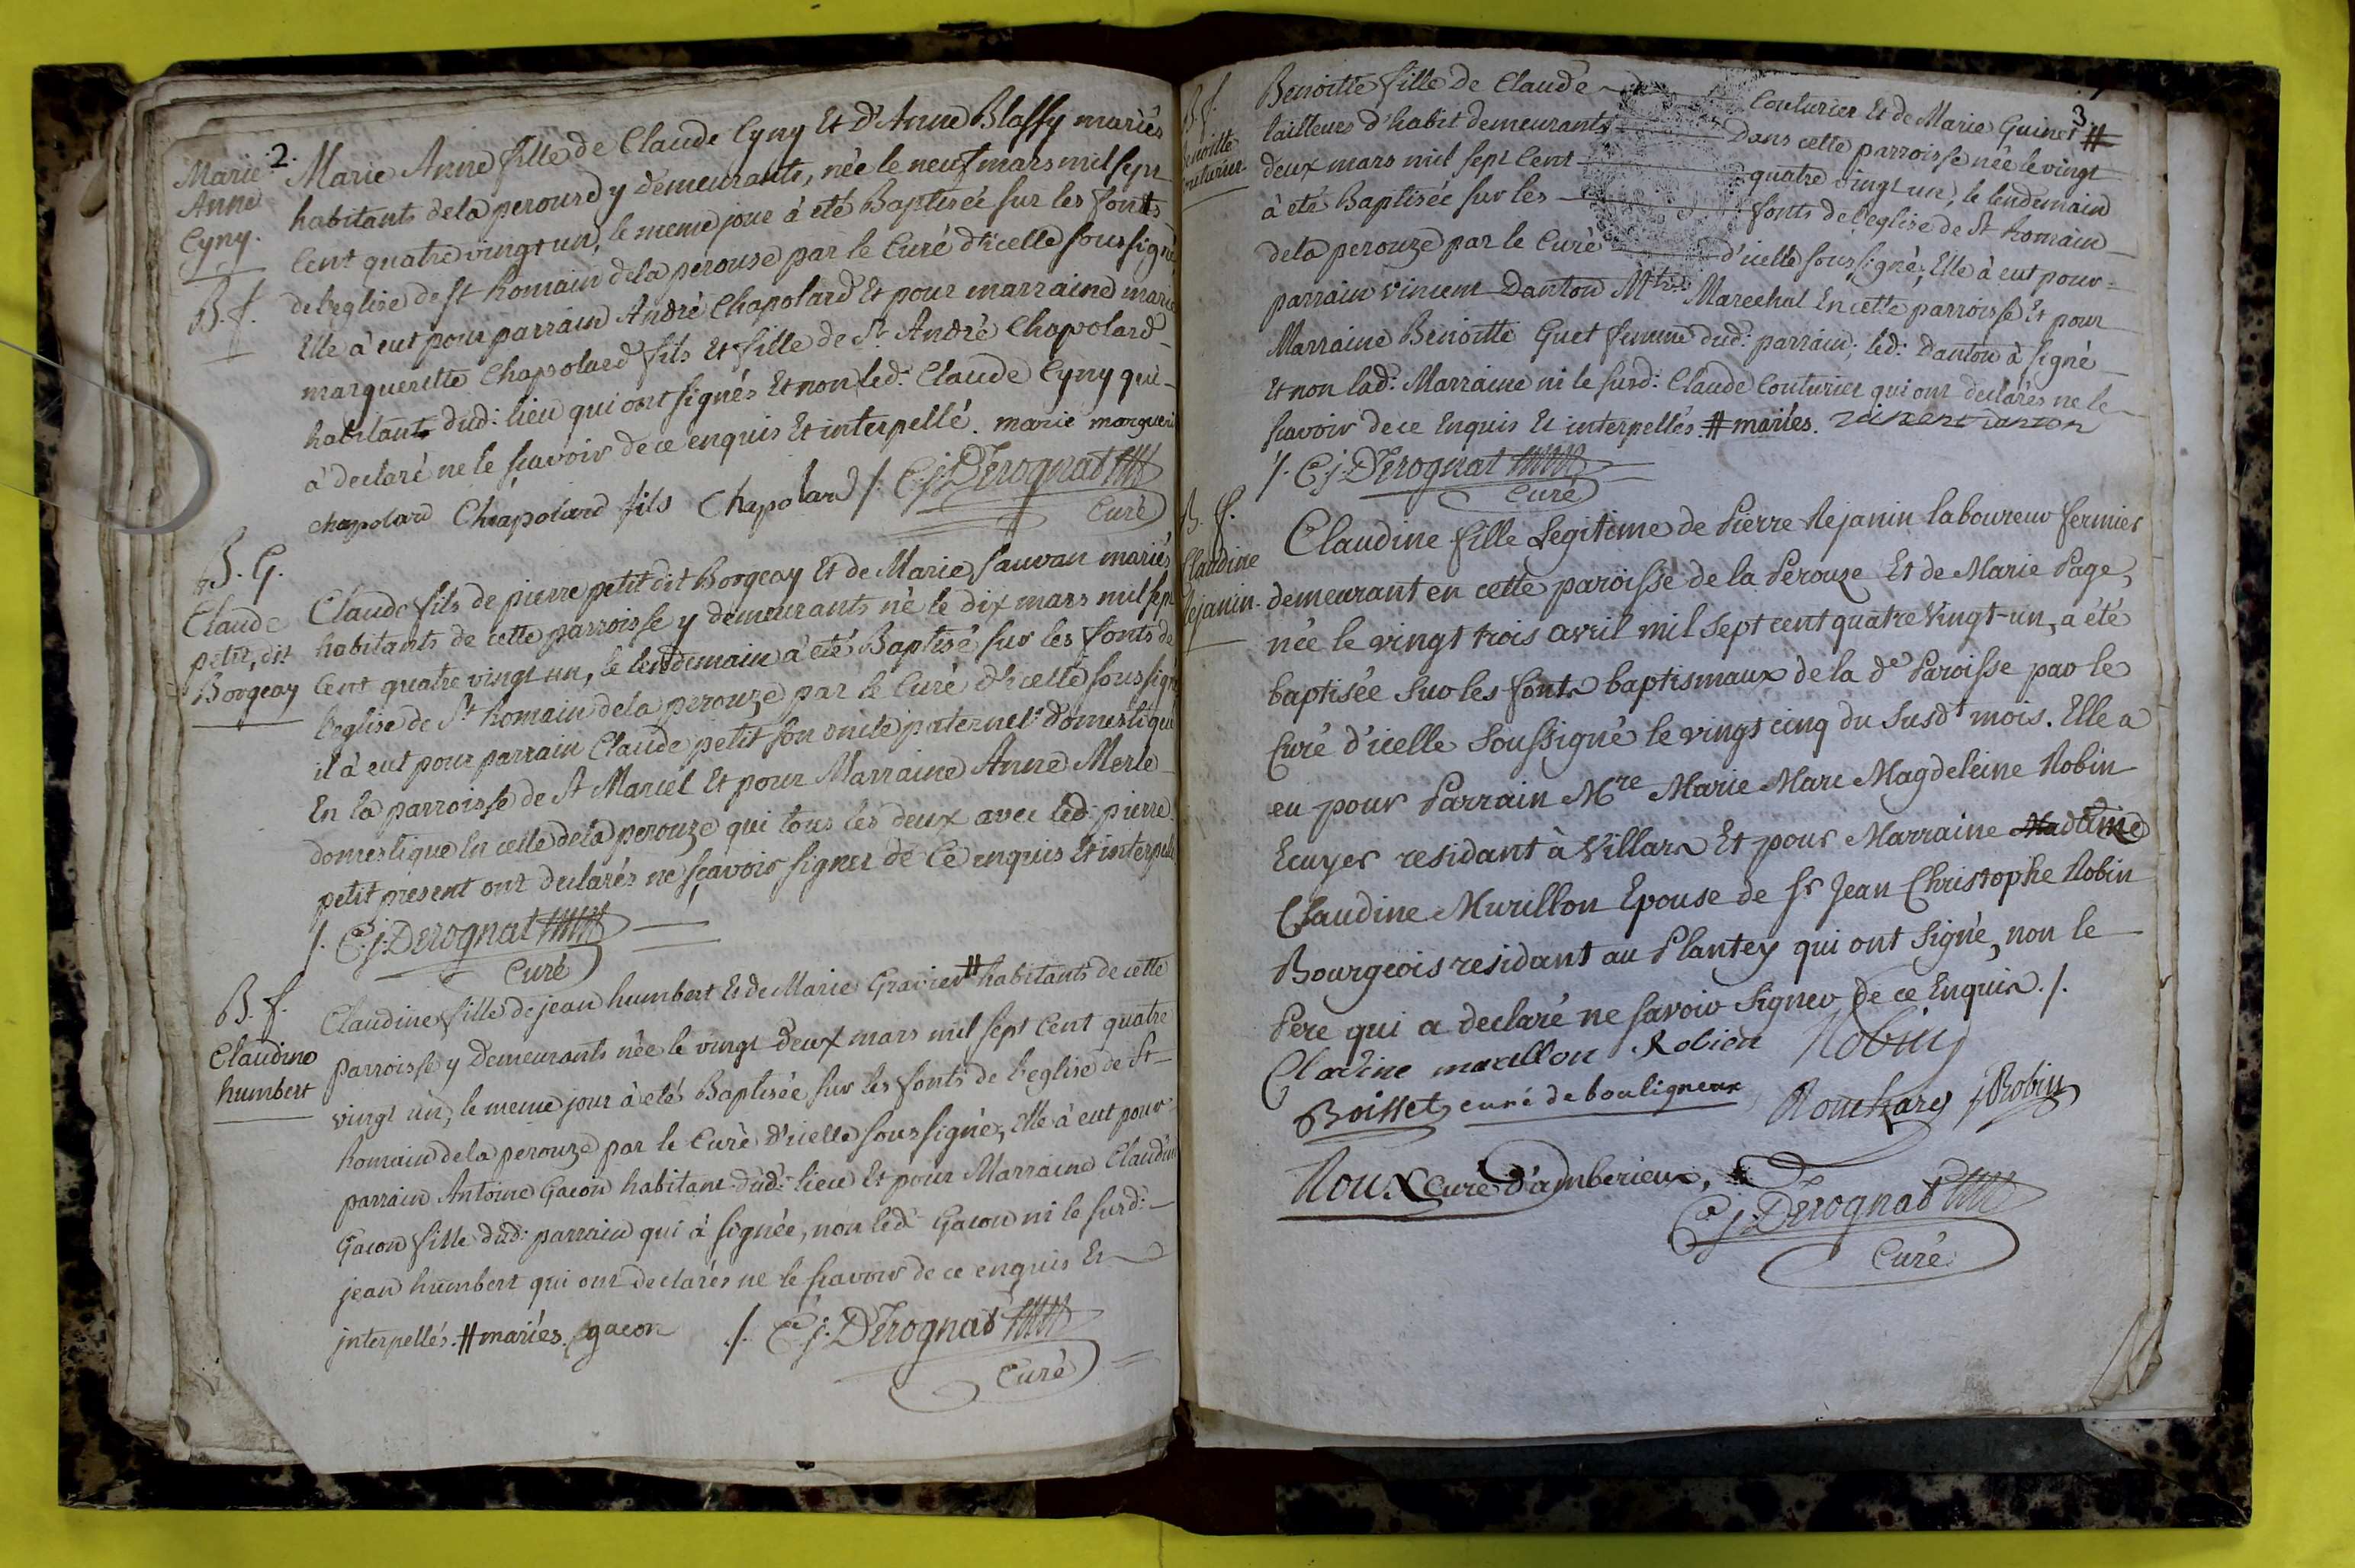 2.
Marie
Anne
Cyny.
B. f.
Marie Anne fille de Claude Cyny Et d'Anne Blaffy mariés
habitants de la perouse y demeurants, née le neuf mars mil sept
Cent quatre vingt un, le meme jour à eté Baptisée sur les fonts
de l'eglise de St Romain de la perouse par le Curé d'icelle soussigné
Elle à eut pour parrain André Chapolard Et pour marraine marie
marguerite Chapolard fils Et fille de Sr André Chapolard
habitant dud: lieu qui ont signés Et non led: Claude Cyny qui
à declaré ne le sçavoir de ce enquis Et interpellé. marie margueri
chapolard Chapolard fils Chapolard /. C. j. Derognat
Curé
B. G.
Claude
petit, dit
Borgeay
Claude fils de pierre petit dit Borgeay Et de Marie Sauvan mariés
habitants de cette parroisse y demeurants né le dix mars mil sept
Cent quatre vingt un, le lendemain à eté Baptisé sur les fonts de
l'eglise de St Romain de la perouze par le Curé d'icelle soussigné
il à eut pour parrain Claude petit son oncle paternel domestique
En la parroisse de St Marcel Et pour Marraine Anne Merle
domestique En celle de la perouze qui tous les deux avec led: pierre
petit present ont declarés ne sçavoir signer de Ce enquis Et interpellé
/. C. j. Derognat
Curé
B. f.
Claudine
humbert
Claudine fille de jean humbert Et de Marie Gravier # habitants de cette
parroisse y demeurants née le vingt deux mars mil sept Cent quatre
vingt un, le meme jour à eté Baptisée sur les fonts de l'eglise de St
Romain de la perouze par le Curé d'icelle soussigné, Elle à eut pour
parrain Antoine Gacon habitant dud: lieu Et pour Marraine Claudine
Gacon fille dud: parrain qui à signée, non led: Gacon ni le susd:
jean humbert qui ont declarés ne le sçavoir de ce enquis Et
interpellés. # mariés. gacon /. C. j. Derognat
Curé
3.
B. f.
Benoitte
Couturier
Benoitte fille de Claude Couturier Et de Marie Guinet #
tailleur d'habit demeurants Dans cette parroisse née le vingt
deux mars mil sept Cent quatre vingt un, le lendemain
à eté Baptisée sur les fonts de l'eglise de St Romain
de la perouze par le Curé d'icelle soussigné, Elle à eut pour
parrain vincent Danton Mtre Marechal En cette parroisse Et pour
Marraine Benoitte Guet femme dud: parrain, led: Danton à signé
Et non lad: Marraine ni le susd: Claude Couturier qui ont declarés ne le
sçavoir de ce Enquis Et interpellés. # mariés. vincent danton
/. C. j. Derognat
Curé
B. f.
Claudine
Rejanin.
Claudine fille Legitime de Pierre Rejanin laboureur fermier
demeurant en cette paroisse de la Pérouze Et de Marie Page,
née le vingt trois avril mil sept cent quatre Vingt-un, a été
baptisée sur les fonts baptismaux de la de Paroisse par le
Curé d'icelle Soussigné le vingt cinq du susdt mois. Elle a
eu pour Parrain Mre Marie Marc Magdeleine Robin
Ecuyer residant à Villars Et pour Marraine Madame
Claudine Murillon Epouse de Sr Jean Christophe Robin
Bourgeois residant au Plantey qui ont signé, non le
Pere qui a declaré ne savoir signer de ce Enquis. /.
Robin
Robin
Boisset curé de bouligneux
Robin
Roux Curé d'amberieux,
C. j. Derognat
Curé